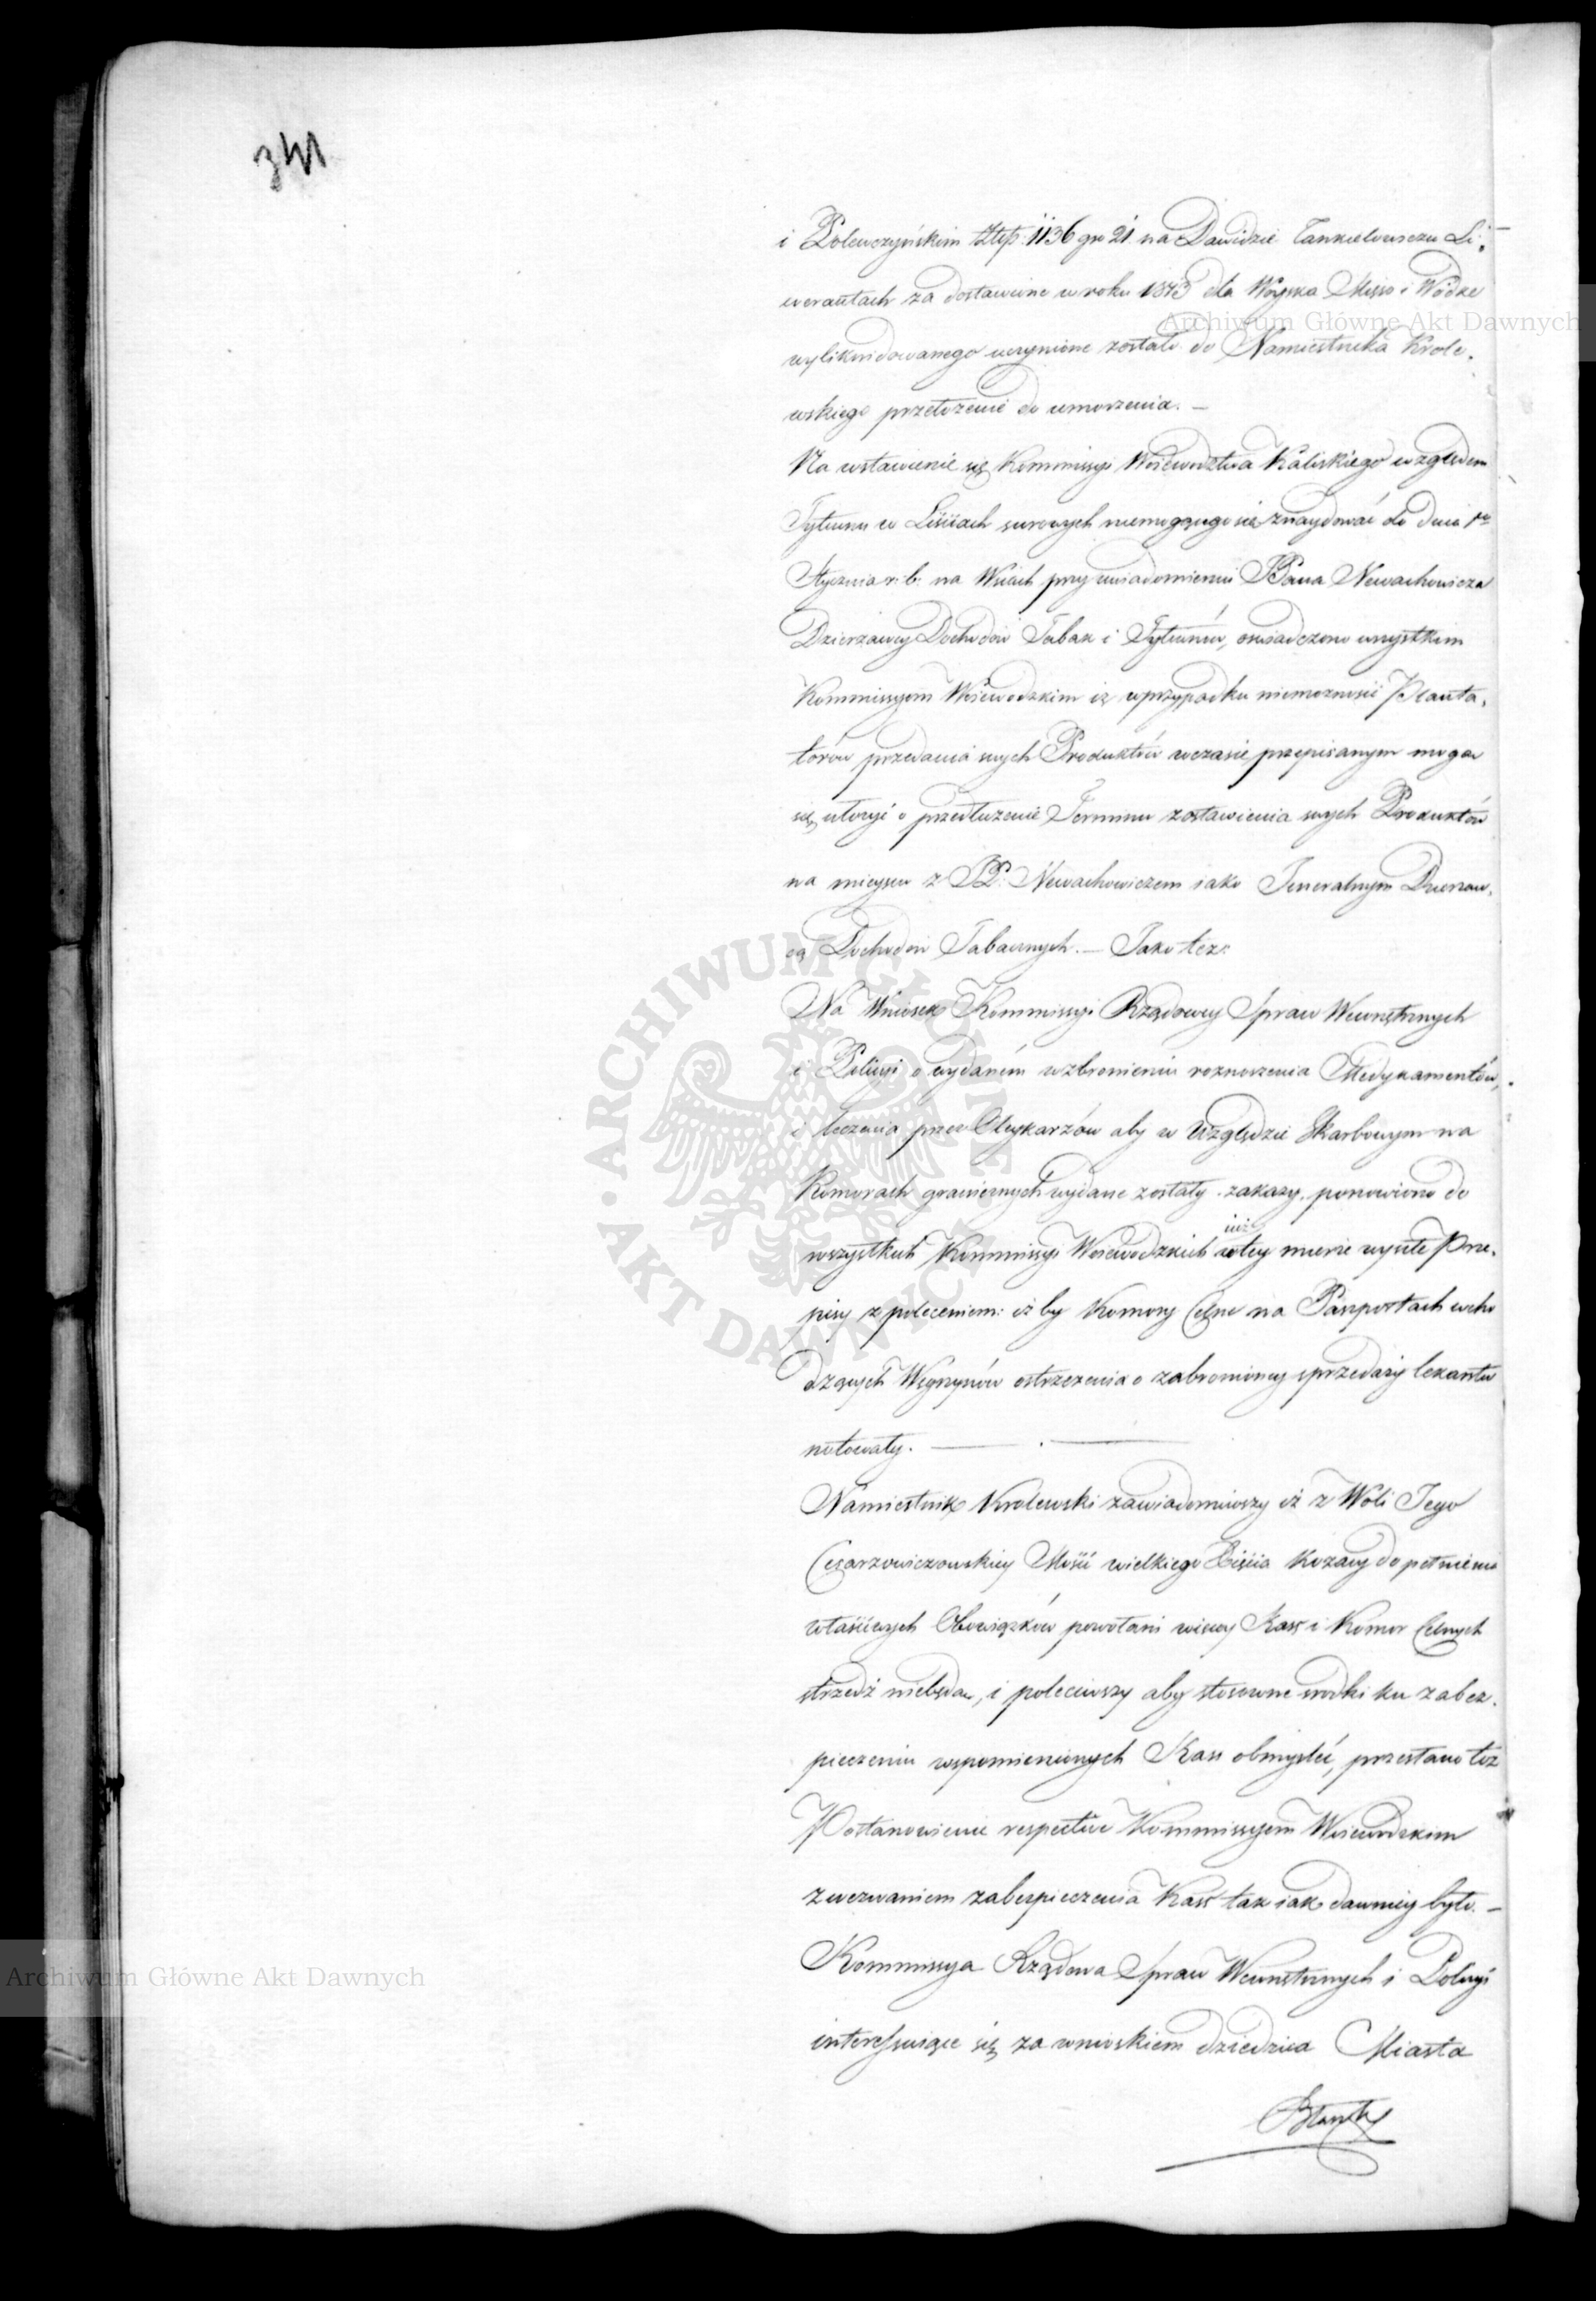 341
i Polewczyńskim złtp: 1136 gr 21 na Dawidzie Jankielowiczu Li-
werantach za dostawione w roku 1813 dla Woyska Mięso i Wódkę
wylikwidowanego uczynione zostało do Namiestnika Krole-
wskiego przełożenie do umorzenia. —
Na wstawienie się Kommissyi Woiewodztwa Kaliskiego względem
Tytuniu w Liściach surowych niemogącego się znaydować do dnia 1go
Stycznia r: b: na Wsiach przy uwiadomieniu Pana Newachowicza
Dzierzawcy Dochodów Tabak i Tytuniów, oswiadczono wszystkim
Kommissyom Woiewodzkim iż w przypadku niemożności Planta-
torów przedania swych Produktów w czasie przepisanym mogą
się ułożyć o przedłużenie Terminu zostawienia swych Produktów
na mieyscu z P. Newachowiczem iako Jeneralnym Dzierzaw-
cą Dochodów Tabacznych. — Jako też:
Na Wniosek Kommissyi Rządowey Spraw Wewnętrznych
i Policyi o wydaném wzbronieniu roznoszenia Medykamentów,
i leczenia przez Oleykarzów aby w Względzie Skarbowym na
Komorach granicznych wydane zostały zakazy, ponowiono do
wszystkich Kommissyi Woiewodzkich iuż w tey mierze wyszłe Prze-
pisy z poleceniem: iż by Komory Celne na Paszportach wcho
dzących Węgrzynów ostrzeżenia o zabronioney sprzedaży lekarstw
notowały. —— . ——
Namiestnik Krolewski zawiadomiwszy iż z Woli Jego
Cesarzowiczowskiey Mości wielkiego Xięcia Kozacy do pełnienia
właściwych Obowiązków powołani więcey Kass i Komor Celnych
strzedz niebędą, i poleciwszy aby stosowne srodki ku zabez-
pieczeniu wspomnionych Kass obmyśleć, przesłano toż
Postanowienie respective Kommissyom Woiewodzkim
z wezwaniem zabespieczenia Kass tak iak dawniey było. —
Kommissya Rządowa Spraw Wewnętrznych i Policyi
interessuiąc się za wnioskiem dziedzica Miasta
Archiwum Główne Akt Dawnych
Archiwum Główne Akt Dawnych
ARCHIWUM GŁÓWNE • AKT DAWNYCH •